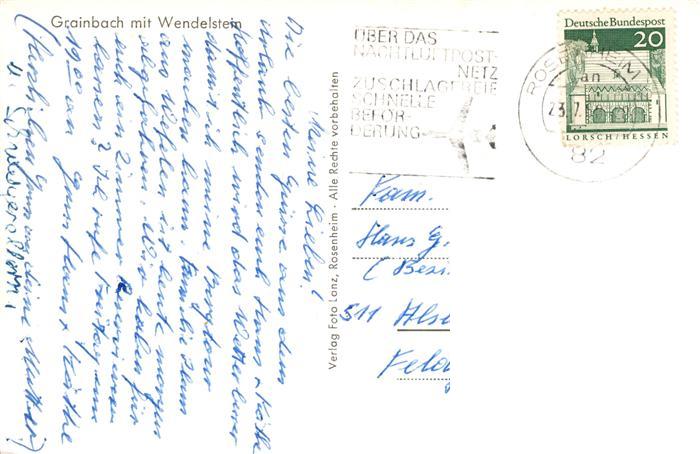 Grainbach mit Wendelstein
Meine Lieben!
Die besten Grüsse aus dem
Urlaub senden euch Hans + Käthe
Hoffentlich wird das Wetter besser
damit ich meine
machen kann. Familie
aus ist heute morgen
abgefahren. Wir haben für
euch ein Zimmer reservieren
lassen? Ich rufe Freitag um
19.00 an Gruss Hans + Käthe
(Herzlichen Gruss deine Mutter)
u. Schwiegereltern
Verlag Foto Lanz, Rosenheim · Alle Rechte vorbehalten
ÜBER DAS
NACHTLUFTPOST-
NETZ
ZUSCHLAGFREIE
SCHNELLE
BEFÖR-
DERUNG
ROSENHEIM
an
23.7.
82
Deutsche Bundespost
20
LORSCH/HESSEN
Fam.
Hans G.
( Bezi
511 Alsd
Feld